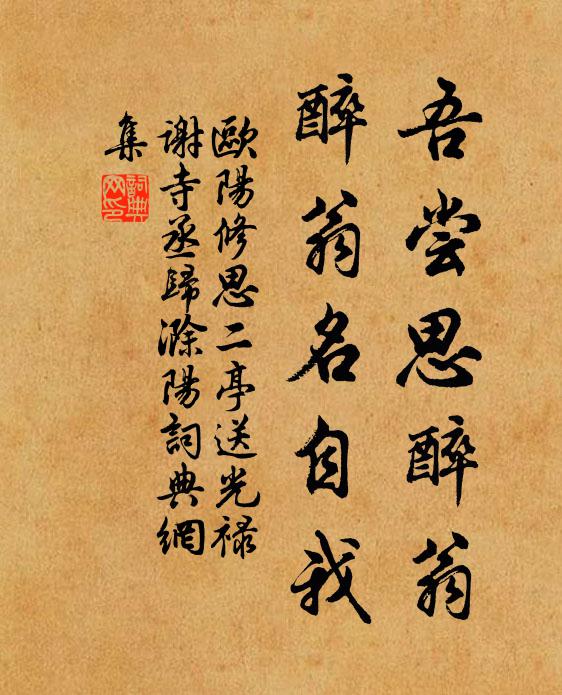 吾尝思醉翁
醉翁名自我
歐陽修思二亭送光禄
谢寺丞歸滁陽詞典網
集
詞典
网印